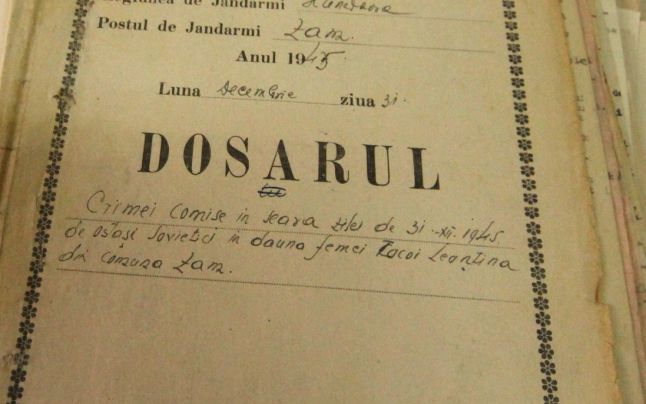 Regiunea de Jandarmi Hunedoara
Postul de Jandarmi Zam.
Anul 1945
Luna Decembrie ziua 31.
DOSARUL
Crimei comise in seara zilei de 31.XII.1945
de ostași Sovietici in dauna femei Leontina
din comuna Zam.